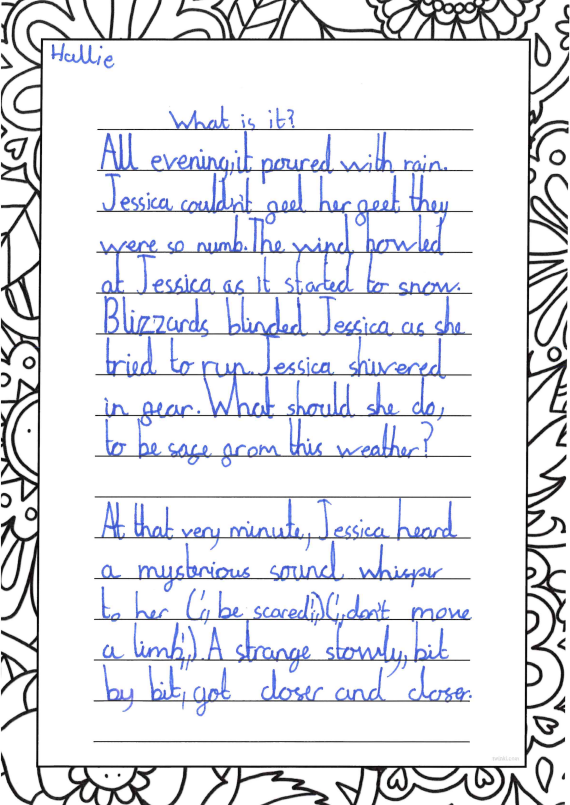 Hallie
What is it?
All evening, it poured with rain.
Jessica couldn't feel her feet they
were so numb. The wind howled
at Jessica as it started to snow.
Blizzards blinded Jessica as she
tried to run. Jessica shivered
in fear. What should she do,
to be safe from this weather?
At that very minute, Jessica heard
a mysterious sound whisper
to her (,,be scared,,)(,,don't move
a limb,,). A strange slowly, bit
by bit, got closer and closer.